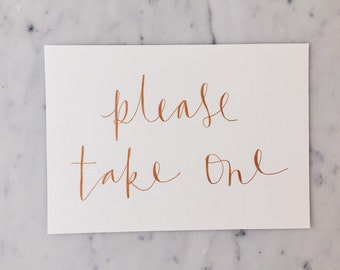 please
take one